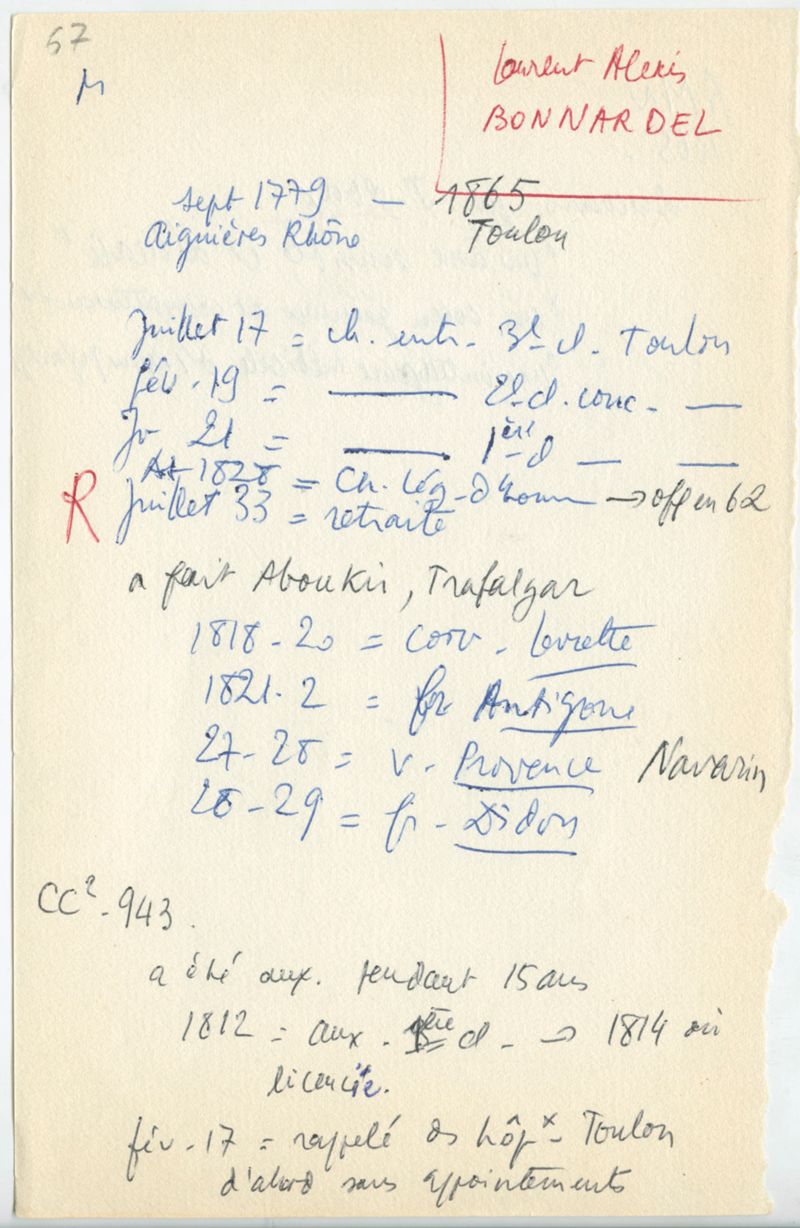 67
M
Laurent Alexis
BONNARDEL
sept 1779 — 1865
Aiguières Rhône Toulon
Juillet 17 = ch. entr. 3e cl. Toulon
fév. 19 = —— 2e cl. conc. —
21 = —— 1ère cl — —
At 1828 = Ch. Lég. d'honn → off en 62
R Juillet 33 = retraite
a fait Aboukir, Trafalgar
1818-20 = corv. Levrette
1821-2 = fr Antigone
27-28 = v. Provence Navarin
28-29 = fr. Didon
CC2. 943.
a été aux. pendant 15 ans
1812 = aux. cl. → 1814 où
licencié.
fév. 17 = rappelé ds hôpx. Toulon
d'abord sans appointements